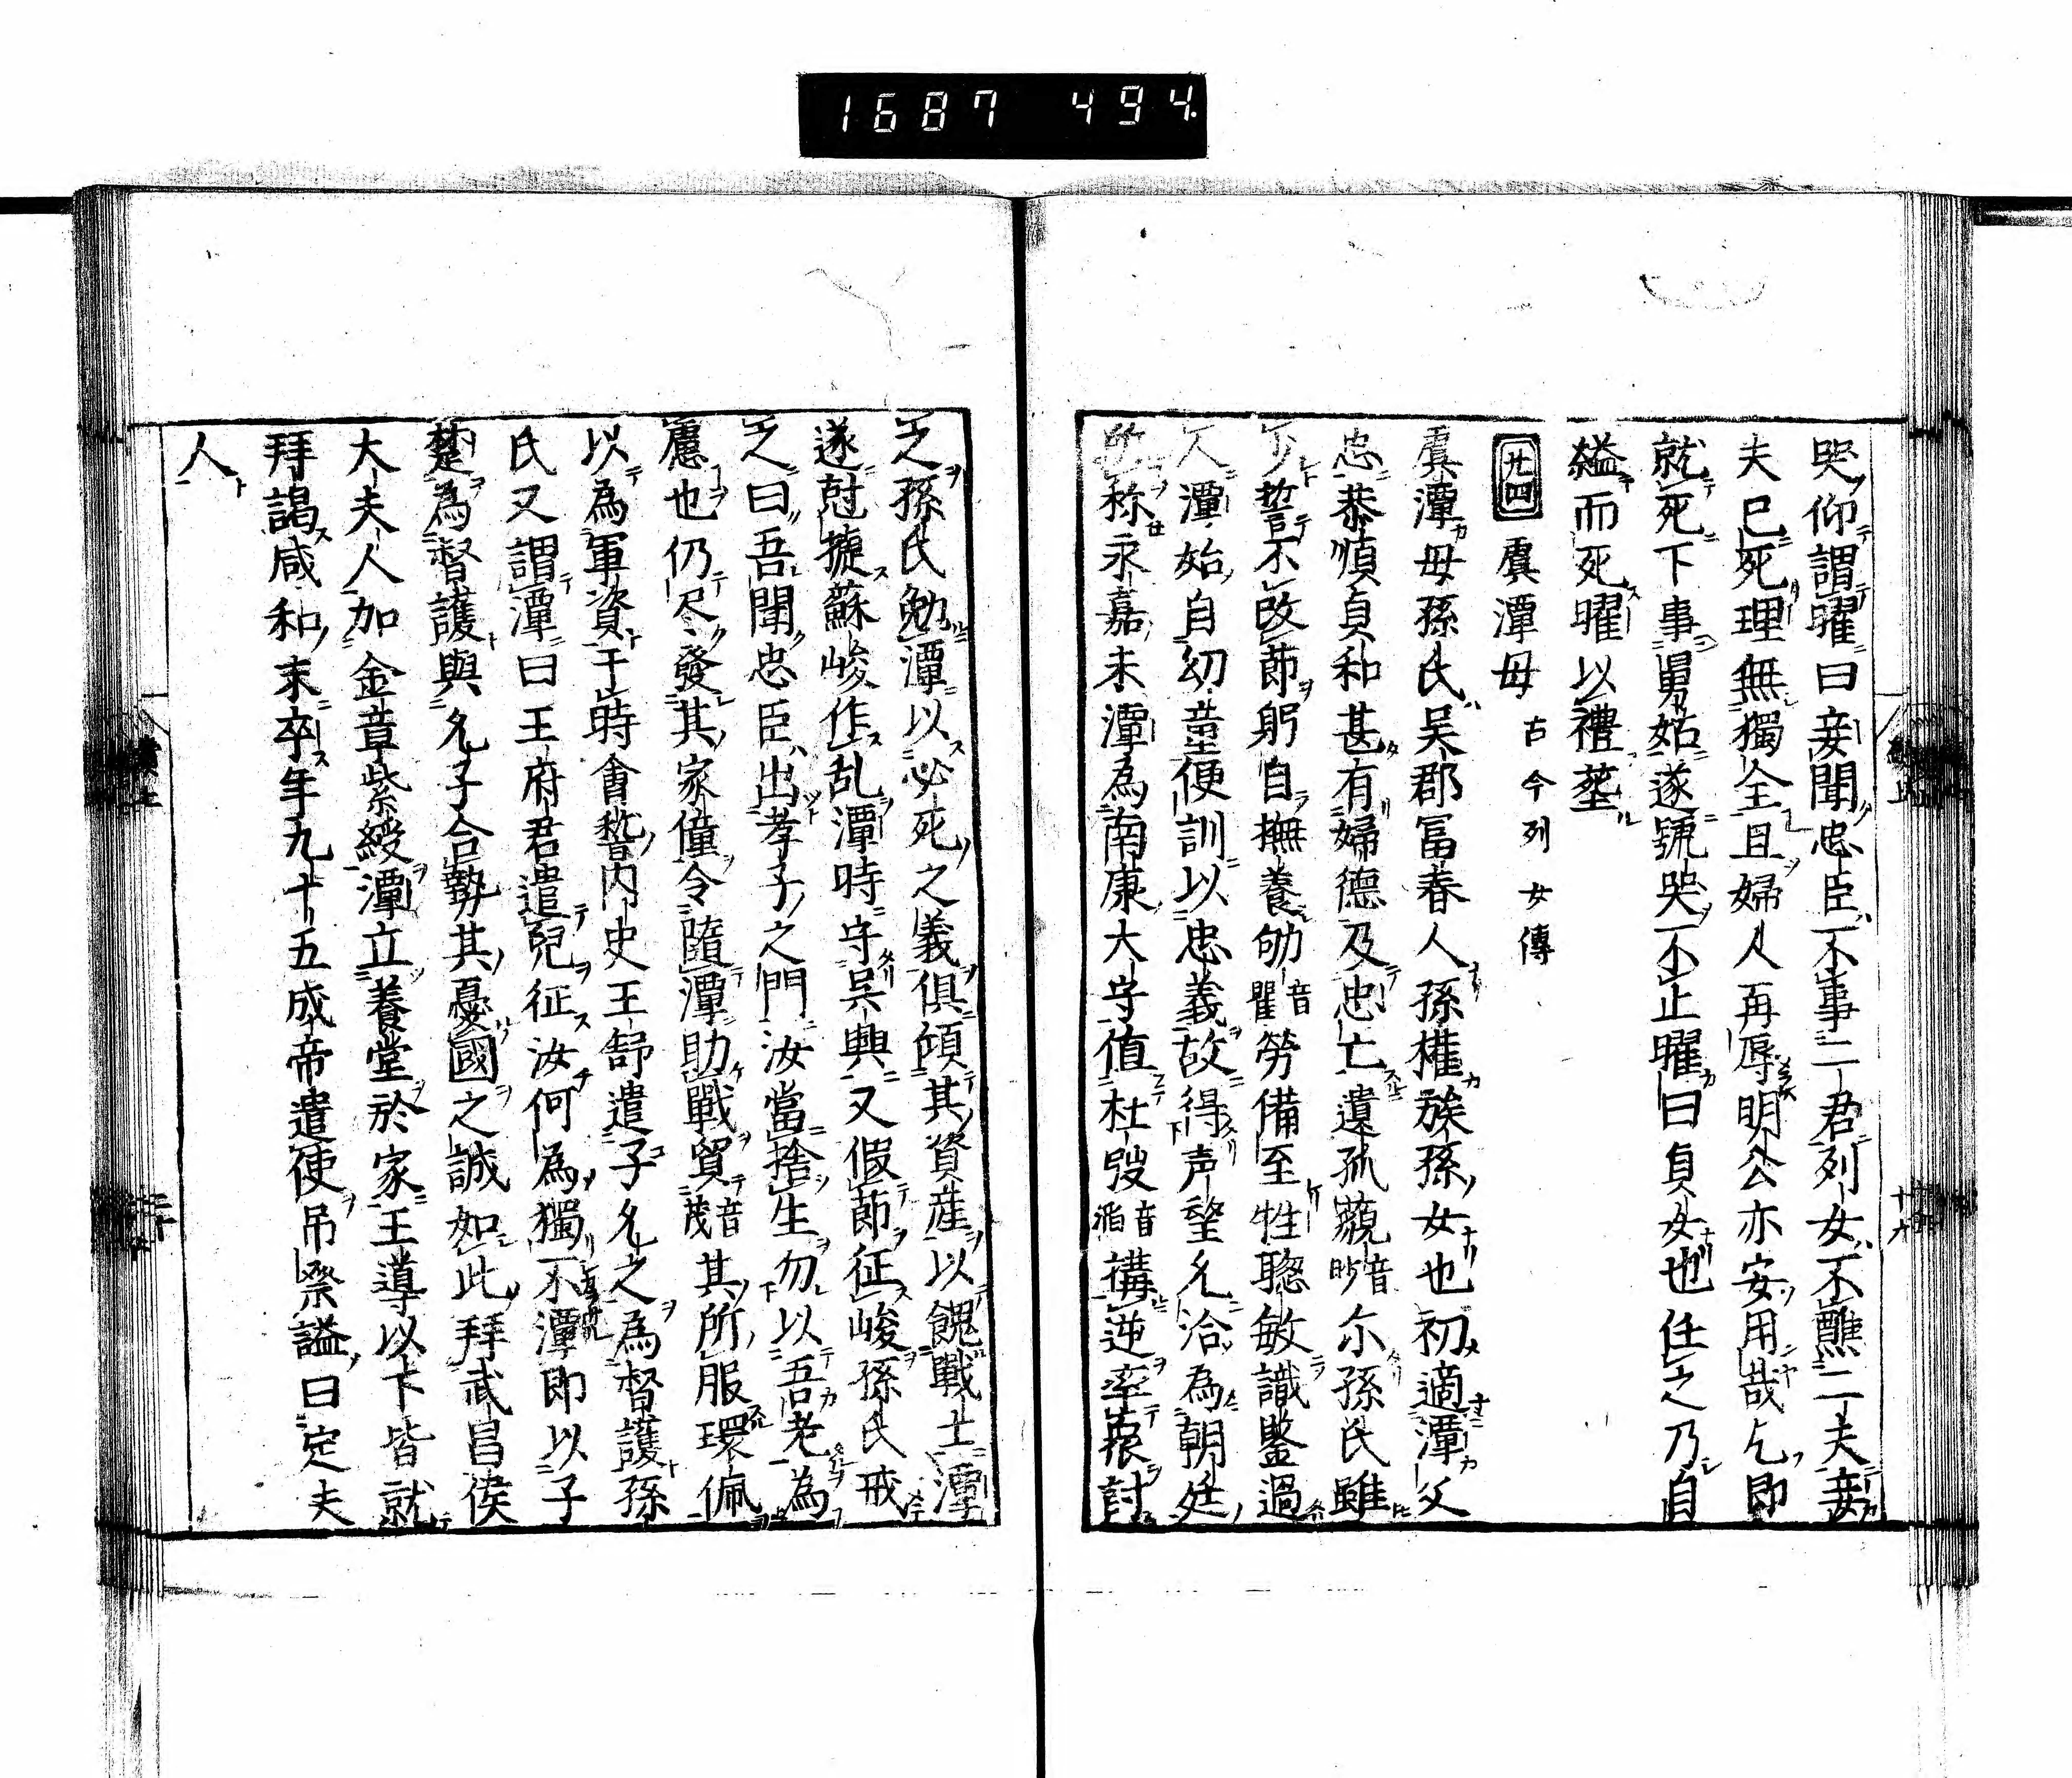 1687 494.
哭仰謂曜曰妾聞忠臣不事二君列女不醮二夫妾
夫已死理無獨全且婦人再辱明公亦安用哉乞即
就死下事舅姑遂號哭不止曜曰貞女也任之乃自
縊而死曜以禮葬
廿四 虞潭母 古今列女傳
虞潭母孫氏吴郡冨春人孫權族孫女也初適潭父
忠恭順貞和甚有婦德及忠亡遺孤藐音眇尓孫氏雖
少誓不改莭躬自撫養劬音瞿勞備至性聡敏識鑒過
人潭始自幼童便訓以忠義故得声望允洽為朝廷
所称永嘉末潭為南康大守值杜弢音滔構逆率衆討
之孫氏勉潭以必死之義俱傾其資産以餽戰士潭
遂尅捷蘇峻作乱潭時守吳興又假莭征峻孫氏戒
之曰吾聞忠臣出孝子之門汝當捨生勿以吾老為
慮也仍尽發其家僮令隨潭助戰貿音茂其所服環佩
以為軍資于時會稽内史王舒遣子允之為督護孫
氏又謂潭曰王府君遣兒征汝何為獨不潭即以子
楚為督護與允子合勢其憂國之誠如此拜武昌侯
大夫人加金章紫綬潭立養堂於家王導以下皆就
拜謁咸和末卒年九十五成帝遣使吊祭謚曰定夫
人